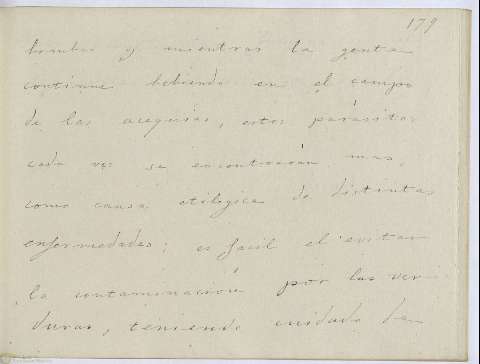 179
hombre y mientras la gente
continue bebiendo en el campo
de las acequias, estos parásitos
cada vez se encontrarán mas,
como causa etilogica de distintas
enfermedades; es facil el evitar
la contaminación por las ver-
duras, teniendo cuidado de